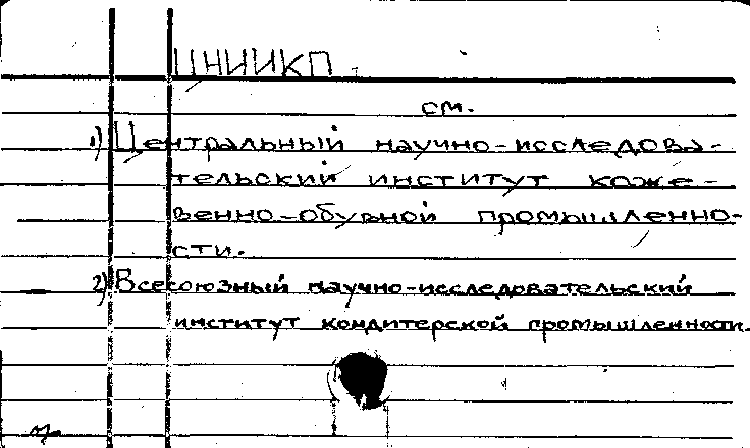 ЦНИИКП
см.
1) Центральный научно-исследова-
тельский институт коже-
венно-обувной промышленно-
сти.
2) Всесоюзный научно-исследовательский
институт кондитерской промышленности.